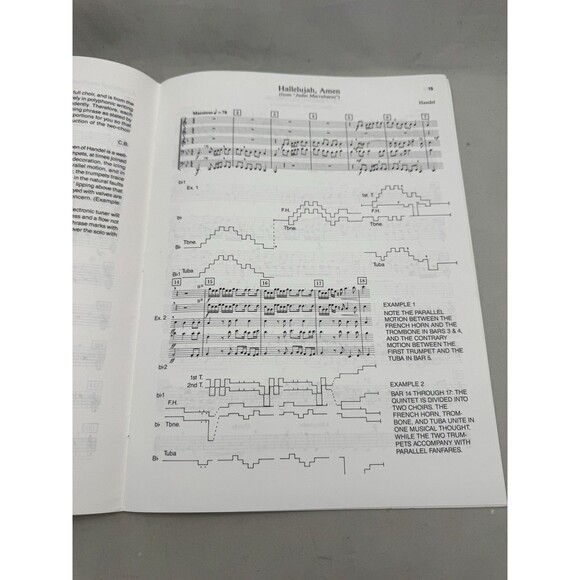 full choir, and is from the
ely in polyphonic writing
ndently. Therefore, each
ning phrase as stated by
portions for you so that
uction of the two-choir
C.B.
en of Handel is a well-
mpets, at times joined
decoration, the icing
rallel motion, and in
, the trumpets trace
in the natural faults
" lipping above that
yed with valves are
oncern. (Example:
ectronic tuner will
ess and a flow not
hrase marks with
er the solo with
Hallelujah, Amen
(from "Judas Maccabaeus")
Handel
15
Maestoso ♩ = 76
2 3 4 5 6 7
b♮1
Ex. 1
1st T.
F.H.
Tbne.
F.H.
Tbne.
B♭
Tuba
B♭1
14 15 16 17 18
Ex. 2
EXAMPLE 1
NOTE THE PARALLEL
MOTION BETWEEN THE
FRENCH HORN AND THE
TROMBONE IN BARS 3 & 4,
AND THE CONTRARY
MOTION BETWEEN THE
FIRST TRUMPET AND THE
TUBA IN BAR 5.
1st T.
2nd T.
F.H.
Tbne.
Tuba
B♭
EXAMPLE 2
BAR 14 THROUGH 17: THE
QUINTET IS DIVIDED INTO
TWO CHOIRS. THE
FRENCH HORN, TROM-
BONE, AND TUBA UNITE IN
ONE MUSICAL THOUGHT,
WHILE THE TWO TRUM-
PETS ACCOMPANY WITH
PARALLEL FANFARES.